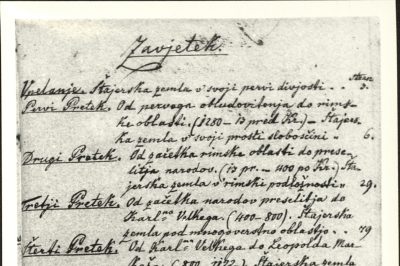 Zavjetek.
Stran
Vpelanje. Štajerska zemla v svoji pervi divjosti . . 3.
Pervi Pretek. Od pervega obludovitenja do rims-
ke oblasti. (1280 – 13 pred Kr.) – Štajers-
ka zemla v svoji prosti slobošini . 6.
Drugi Pretek. Od začetka rimske oblasti do prese-
litja narodov. (13 pr. – 400 po Kr.) Šta-
jerska zemla v rimski podložnosti . 29.
Tretji Pretek. Od začetka narodov preselitja do
Karl Velkega. (400–800). Štajerska
zemla pod mnogoverstno oblastjo . . 79
Šterti Pretek. Od Karl Velkega do Leopolda Mar-
(800 – Štajerska zemla